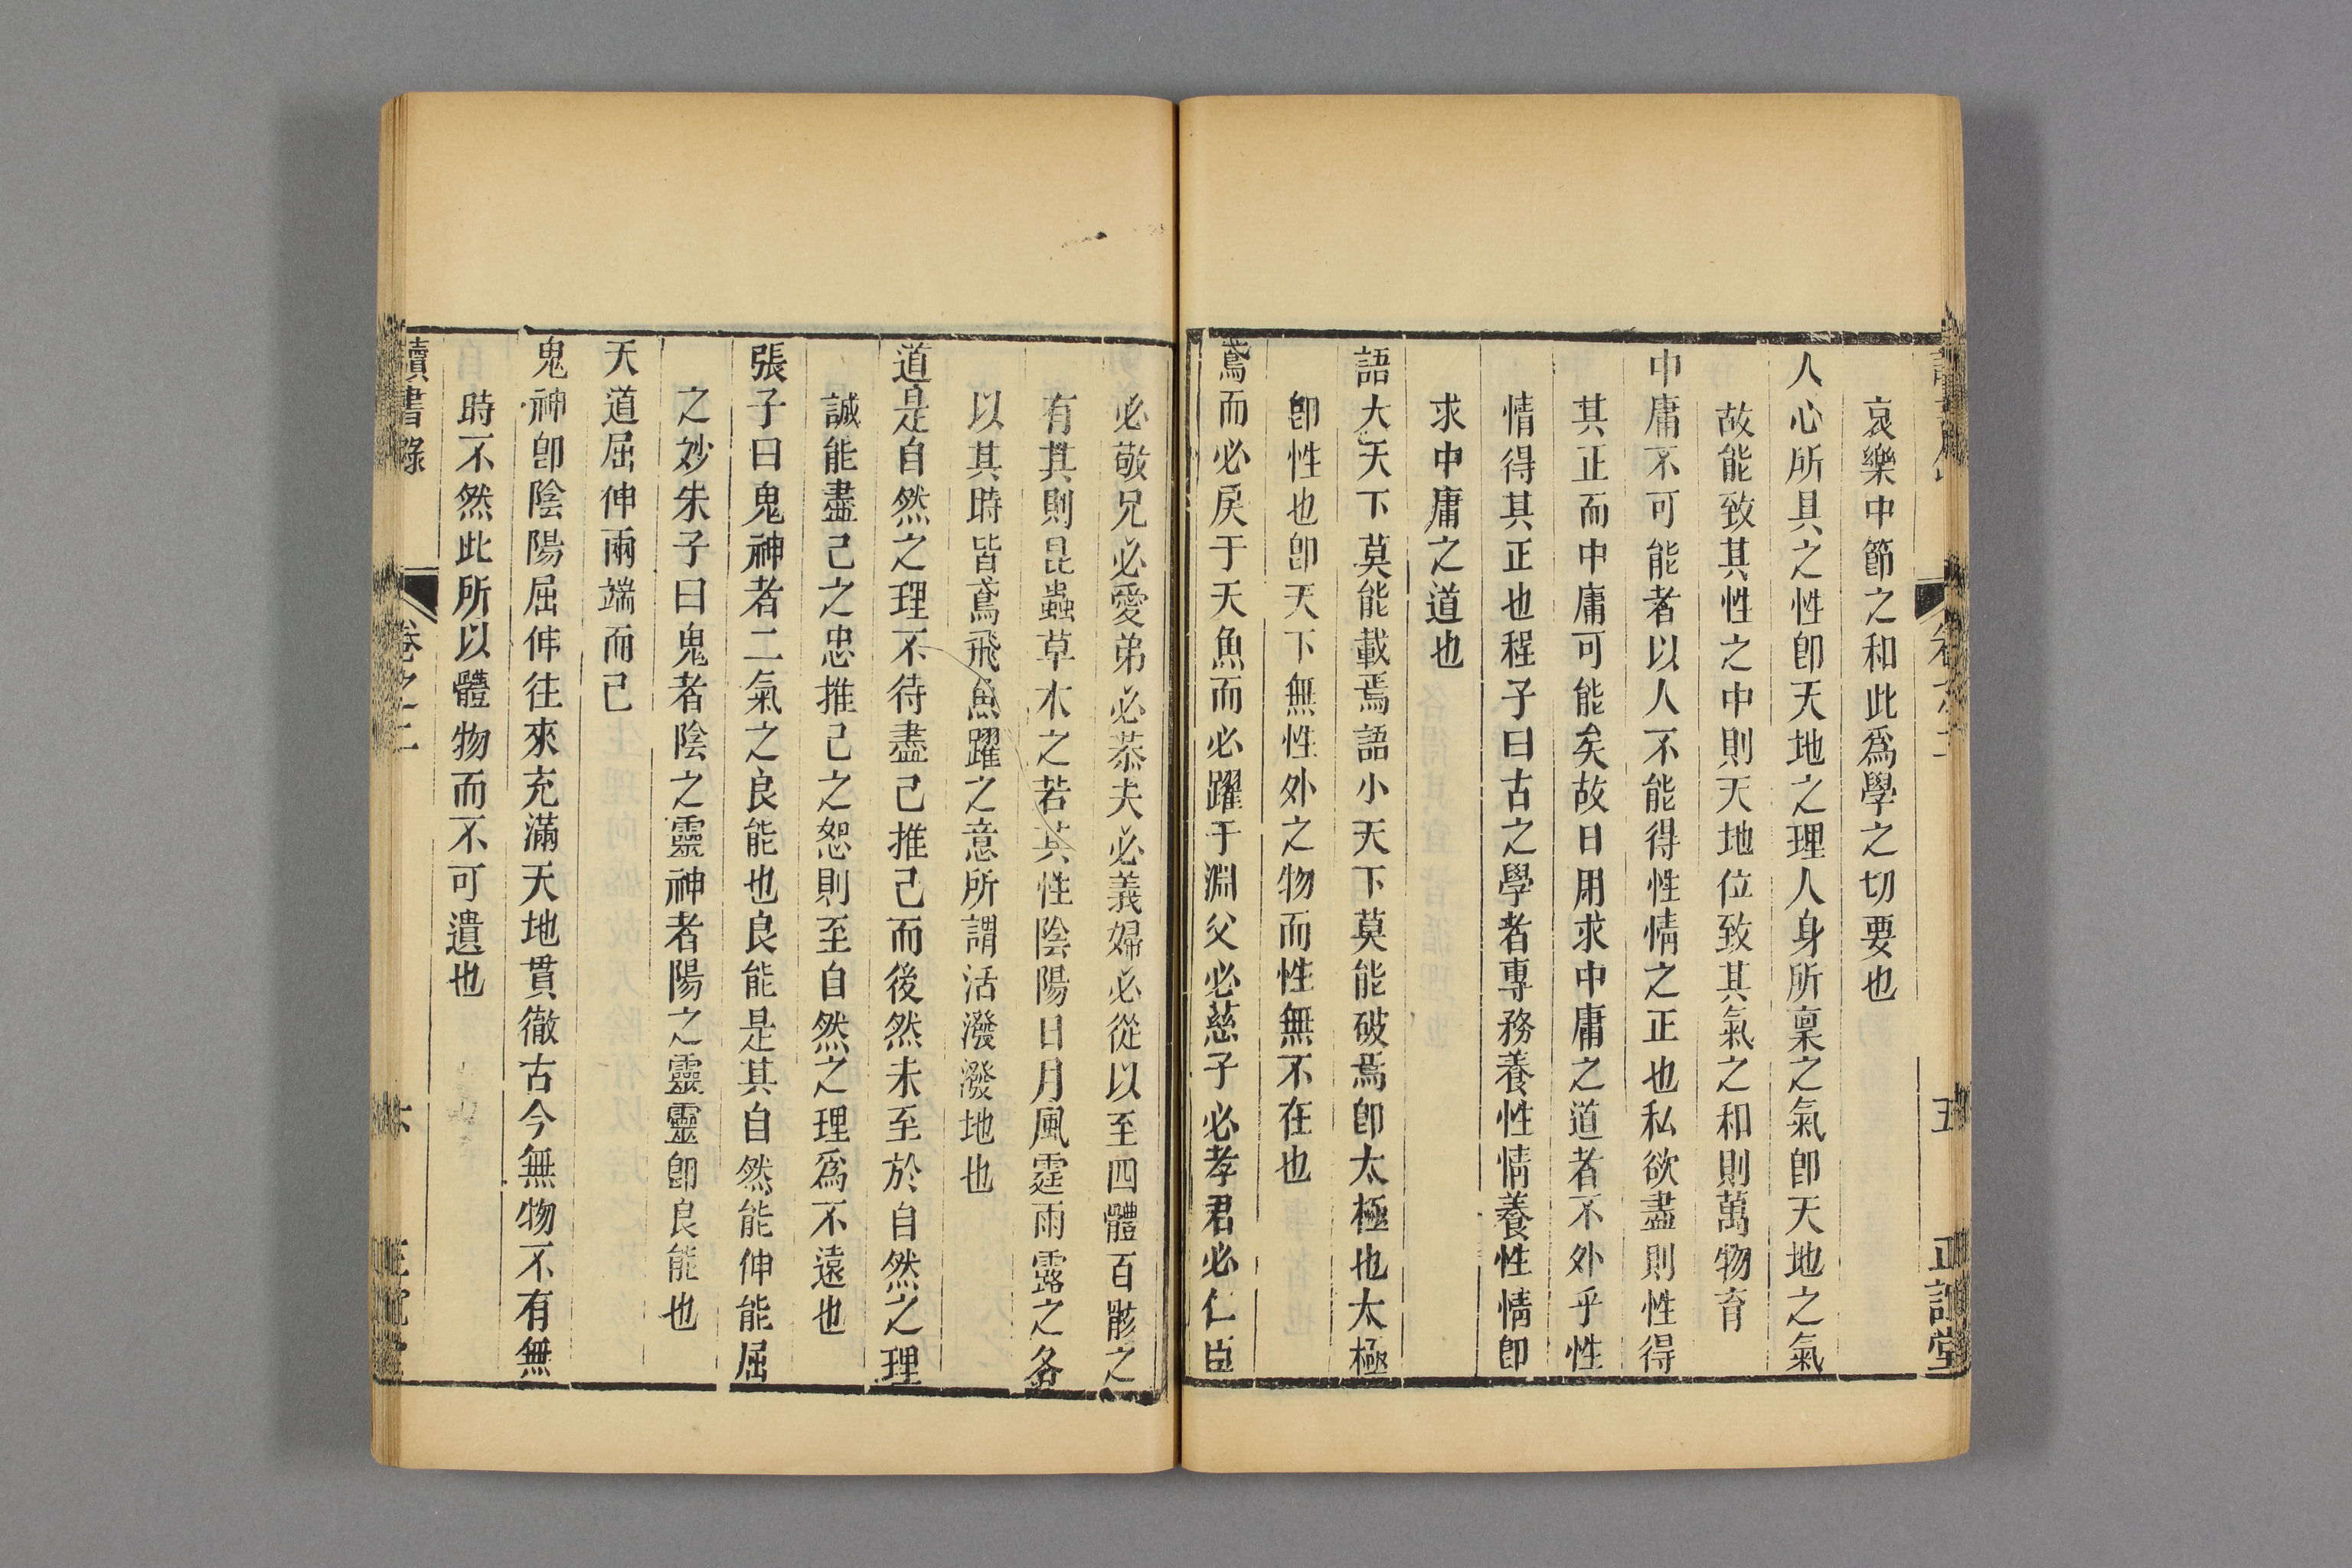 哀樂中節之和此爲學之切要也
人心所具之性卽天地之理人身所稟之氣卽天地之氣
故能致其性之中則天地位致其氣之和則萬物育
中庸不可能者以人不能得性情之正也私欲盡則性得
其正而中庸可能矣故日用求中庸之道者不外乎性
情得其正也程子曰古之學者專務養性情養性情卽
求中庸之道也
語大天下莫能載焉語小天下莫能破焉卽太極也太極
卽性也卽天下無性外之物而性無不在也
鳶而必戾于天魚而必躍于淵父必慈子必孝君必仁臣
必敬兄必愛弟必恭夫必義婦必從以至四體百骸之
有其則昆蟲草木之若其性陰陽日月風霆雨露之各
以其時皆鳶飛魚躍之意所謂活潑潑地也
道是自然之理不待盡己推己而後然未至於自然之理
誠能盡己之忠推己之恕則至自然之理爲不遠也
張子曰鬼神者二氣之良能也良能是其自然能伸能屈
之妙朱子曰鬼者陰之靈神者陽之靈靈卽良能也
天道屈伸兩端而已
鬼神卽陰陽屈伸往來充滿天地貫徹古今無物不有無
時不然此所以體物而不可遺也
讀書錄
卷之二
六
五
正誼堂